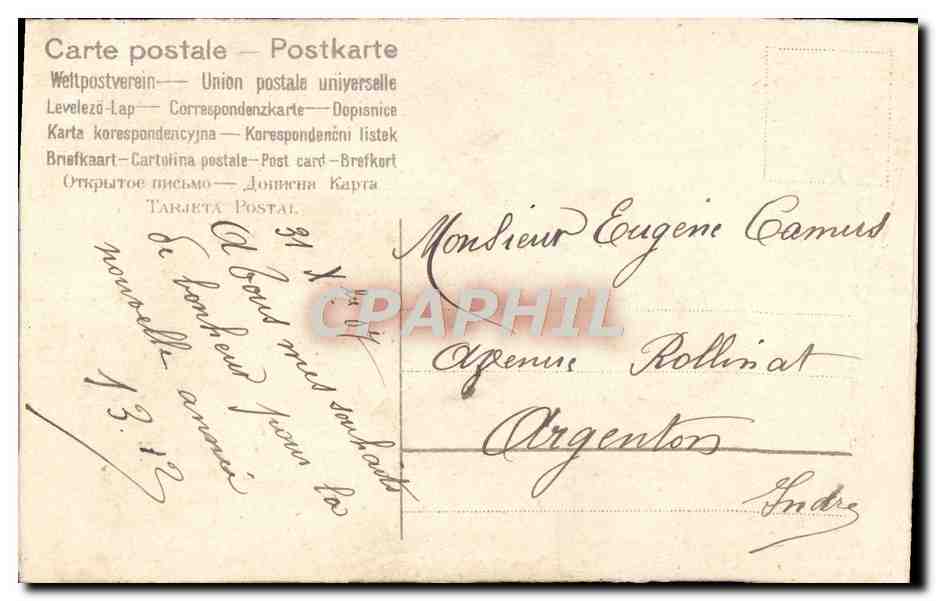 Carte postale — Postkarte
Weltpostverein — Union postale universelle
Levelező-Lap — Correspondenzkarte — Dopisnice
Karta korespondencyjna — Korespondenčni listek
Briefkaart — Cartolina postale — Post card — Brefkort
Открытое письмо — Дописна Карта
TARJETA POSTAL
31 Xbre 07
A tous mes souhaits
de bonheur pour la
nouvelle année
Monsieur Eugène Camus
Avenue Rollinat
Argenton
Indre
CPAPHIL